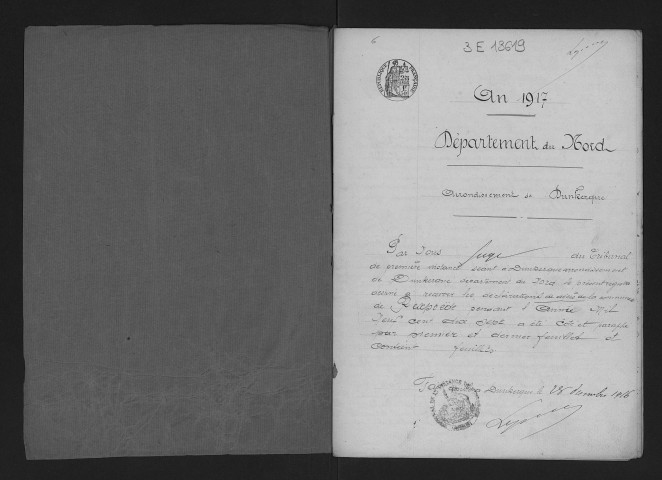 6
3 E 13619
RÉPUBLIQUE FRANÇAISE
An 1917
Département du Nord
Arrondissement de Dunkerque
Par Nous Juge du Tribunal
de première instance séant à Dunkerque arrondissement
de Dunkerque département du Nord, le présent registre
destiné à recevoir les déclarations de la commune
de pendant l'année Mil
Neuf cent dix sept a été coté et paraphé
par premier et dernier feuillet et
contient feuillets
Dunkerque le 28 décembre 1916